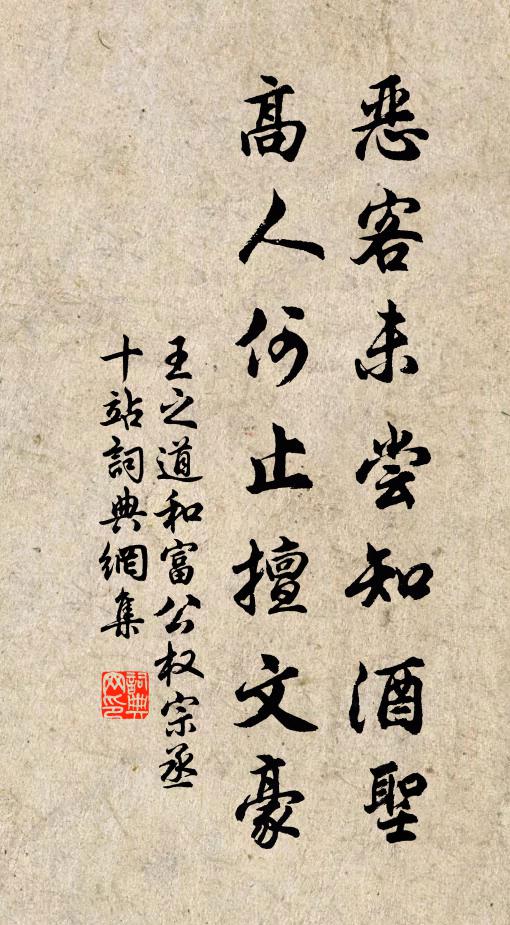 恶客未尝知酒聖
高人何止擅文豪
王之道和富公权宗丞
十站詞典網集
詞典
网印